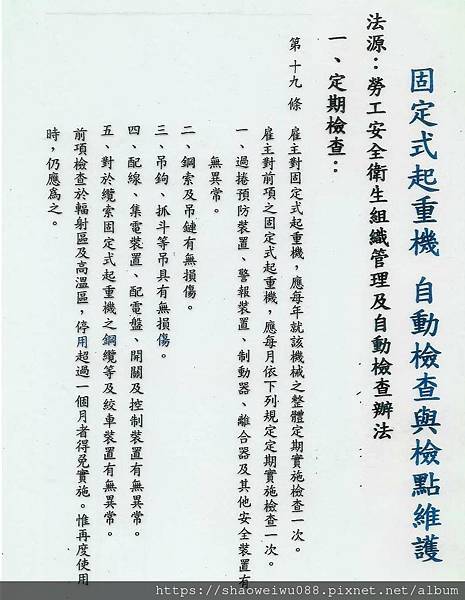 固定式起重機 自動檢查與檢點維護
法源：勞工安全衛生組織管理及自動檢查辦法
一、定期檢查：
第十九條 雇主對固定式起重機，應每年就該機械之整體定期實施檢查一次。
雇主對前項之固定式起重機，應每月依下列規定定期實施檢查一次。
一、過捲預防裝置、警報裝置、制動器、離合器及其他安全裝置有
無異常。
二、鋼索及吊鏈有無損傷。
三、吊鉤、抓斗等吊具有無損傷。
四、配線、集電裝置、配電盤、開關及控制裝置有無異常。
五、對於纜索固定式起重機之鋼纜等及絞車裝置有無異常。
前項檢查於輻射區及高溫區，停用超過一個月者得免實施。惟再度使用
時，仍應為之。
https://shaoweiwu088.pixnet.net/album